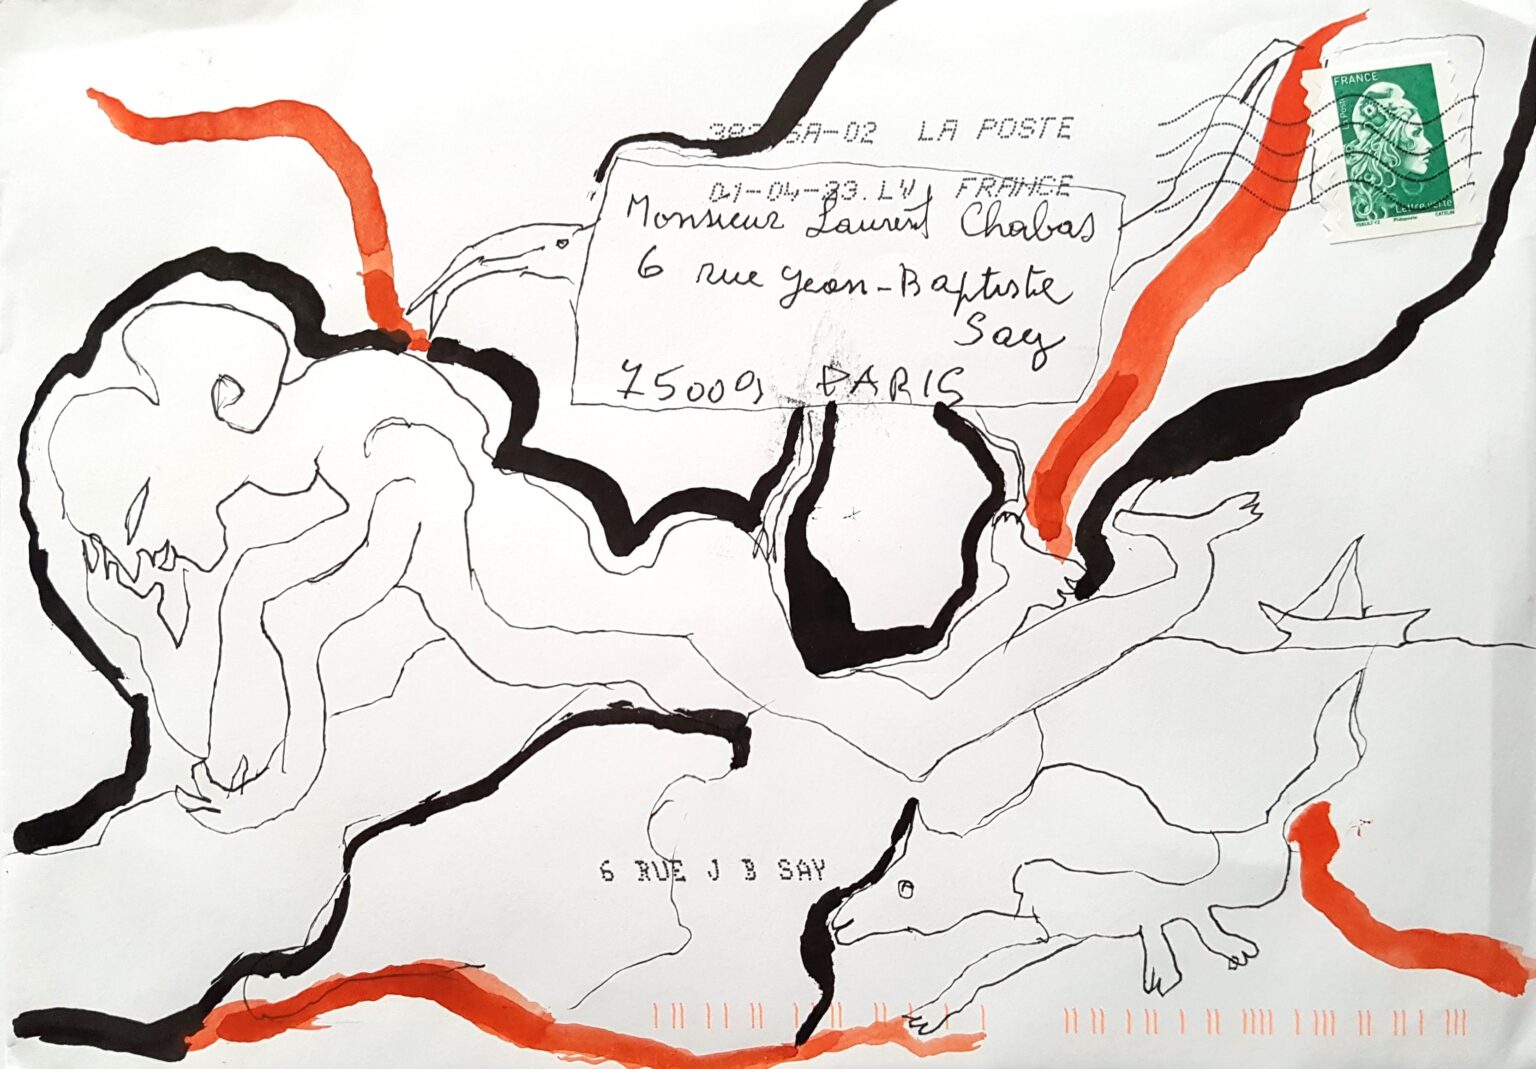 SA-02 LA POSTE
01-04-23.LV FRANCE
Monsieur Laurent Chabas
6 rue Jean-Baptiste
Say
75009 PARIS
6 RUE J B SAY
FRANCE
La Poste
Lettre verte